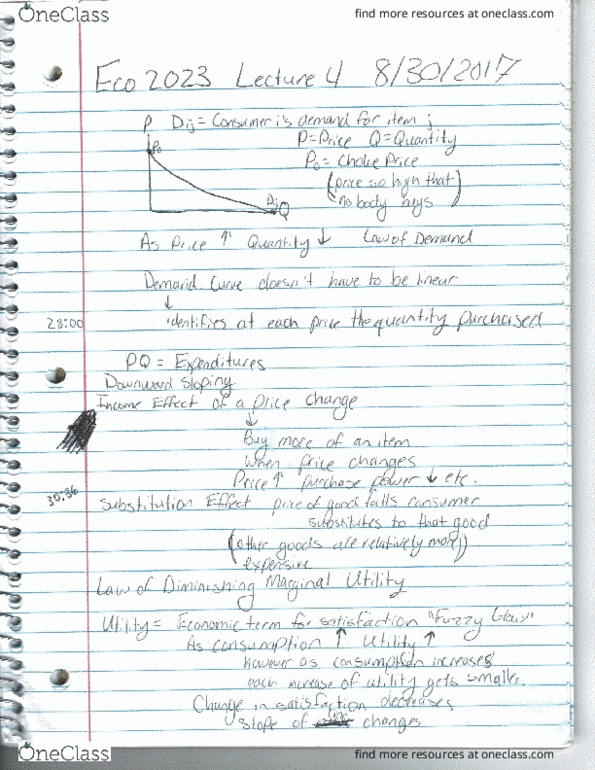 OneClass
find more resources at oneclass.com
Eco 2023 Lecture 4 8/30/2017
P Dij = Consumer i's demand for item j
P=Price Q=Quantity
Po
Po = Choke Price
(price so high that
nobody buys)
Dij Q
As Price ↑ Quantity ↓ Law of Demand
Demand Curve doesn't have to be linear
↓
28:00
identifies at each price the quantity purchased
PQ = Expenditures
Downward Sloping
Income Effect of a price change
↓
Buy more of an item
when price changes
Price ↑ purchase power ↓ etc.
30:36
Substitution Effect price of good falls consumer
substitutes to that good
(other goods are relatively more)
expensive
Law of Diminishing Marginal Utility
Utility = Economic term for satisfaction "Fuzzy Glow"
As consumption ↑ Utility ↑
however as consumption increases
each increase of utility gets smaller.
Change in satisfaction decreases
slope of line changes
OneClass
find more resources at oneclass.com